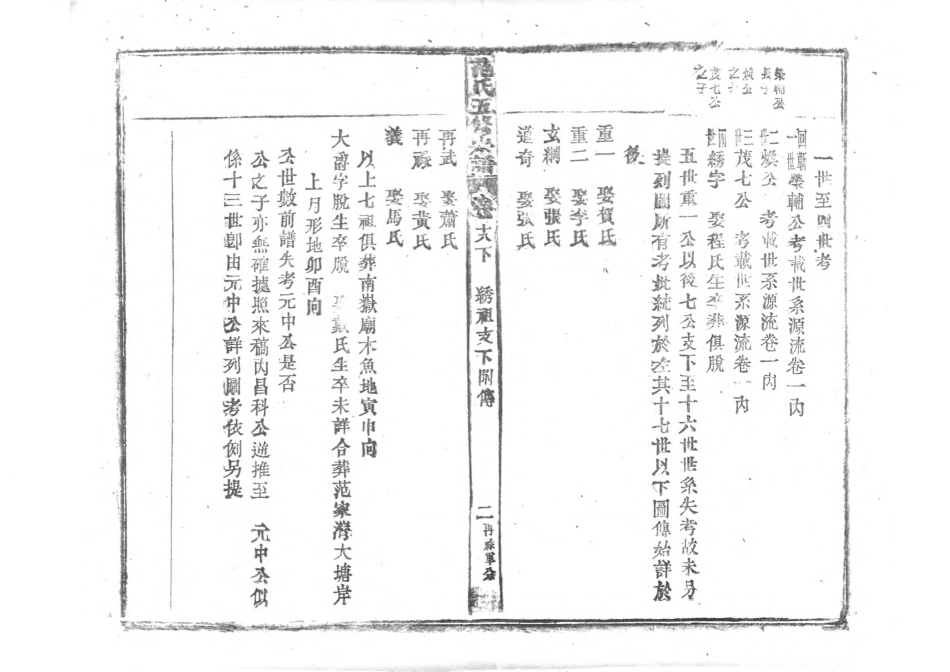 一世至四世考
榮輔公
長子
回鄿
一世榮輔公考載世系源流卷一內
煥公
之子
二世煥公 考載世系源流卷一內
茂七公
之子
三世茂七公 考載世系源流卷一內
四世綉字 娶程氏生卒葬俱脫
五世重一公以後七公支下至十六世世系失考故未另
提列圖所有考抄統列於左其十七世以下圖傳始詳於
後
重一 娶賀氏
重二 娶李氏
玄綱 娶張氏
道奇 娶張氏
范氏五修宗譜 卷十六下 綉祖支下附傳 二 再祿軍分
再武 娶蕭氏
再祿 娶黃氏
義 娶馬氏
以上七祖俱葬南嶽廟木魚地寅申向
大爵字脫生卒脫 娶戴氏生卒未詳合葬范家灣大塘岸
上月形地卯酉向
公世數前譜失考元中公是否
公之子亦無確據照來稿內昌科公逆推至 元中公似
係十三世卽由元中公詳列圖考依例另提